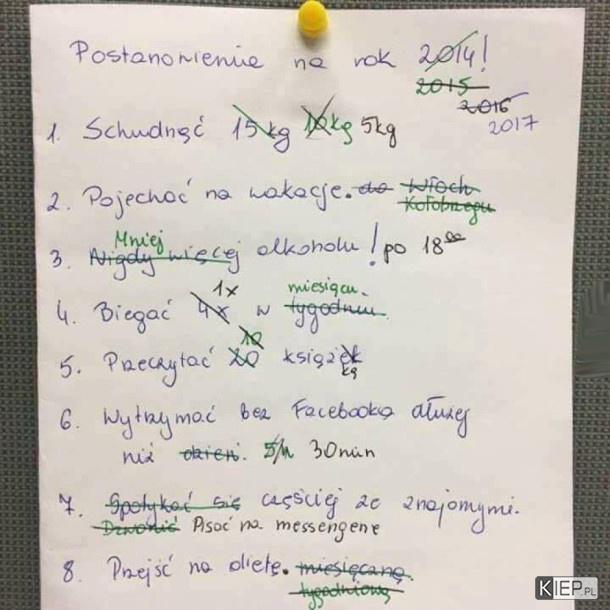 Postanowienie na rok 2014!
2015
2016
2017
1. Schudnąć 15kg 10kg 5kg
2. Pojechać na wakacje. do Włoch
Kołobrzegu
Mniej
3. Nigdy więcej alkoholu! po 18⁰⁰
1x miesiącu.
4. Biegać 4x w tygodniu.
10
5. Przeczytać 20 książek
kę
6. Wytrzymać bez Facebooka dłużej
niż dzień. 5h 30min
7. Spotykać się częściej ze znajomymi.
Dzwonić Pisać na messengerze
8. Przejść na dietę. miesięczną.
tygodniową
KIEP.PL